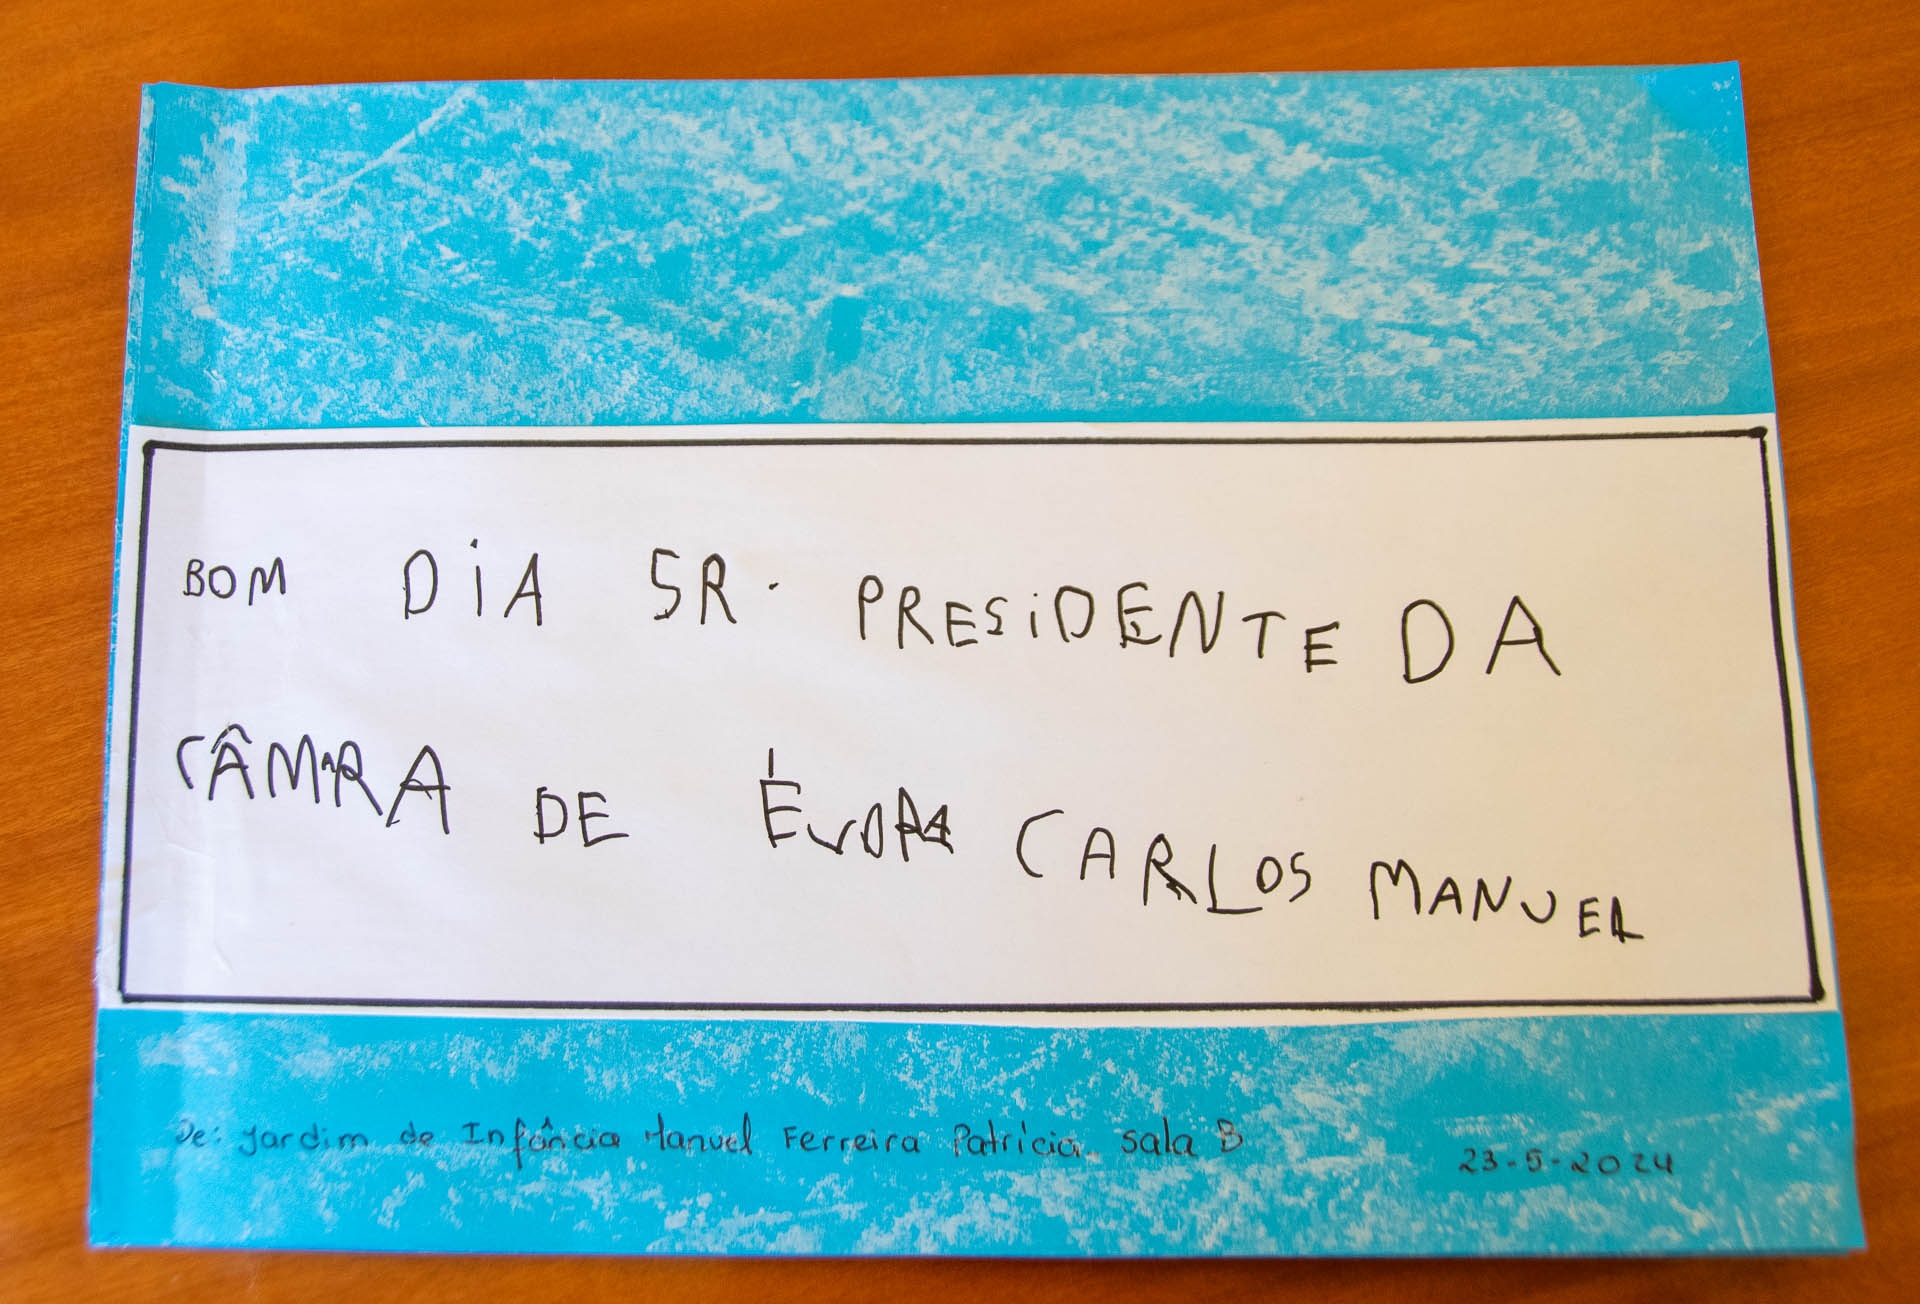 BOM DIA SR. PRESIDENTE DA
CÂMARA DE ÉVORA CARLOS MANUEL
De: Jardim de Infância Manuel Ferreira Patrícia. Sala B
23-5-2024